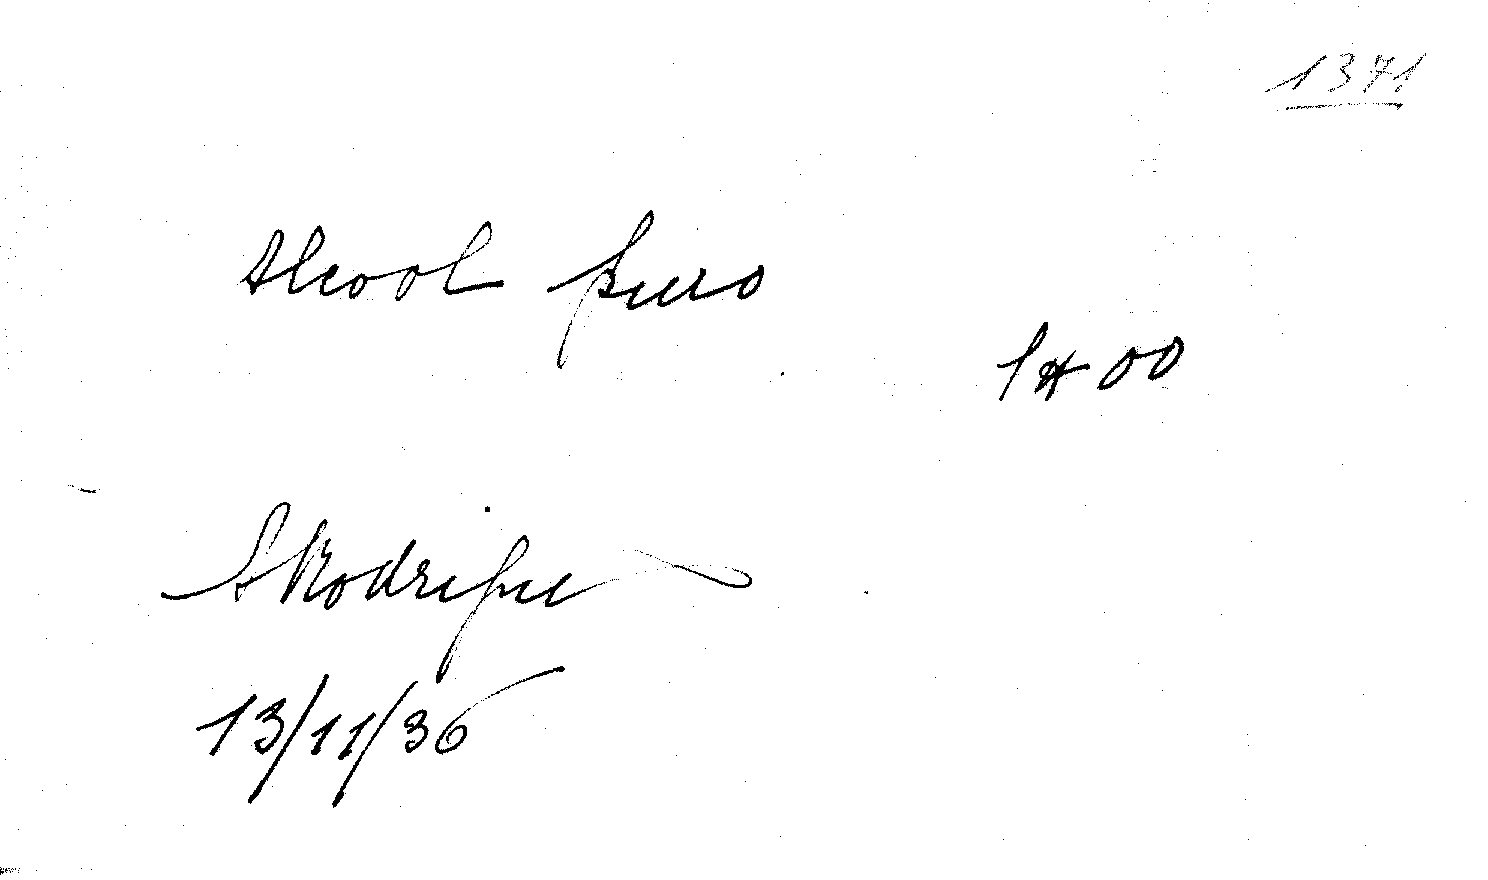 1371
Alcool puro
1$00
ARodrigue
13/11/36